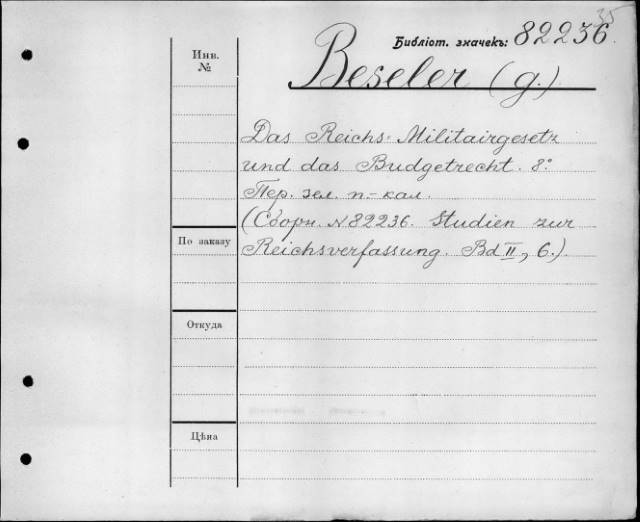 35
Библіот. значекъ: 82236.
Инв.
№
Beseler (g.)
Das Reichs-Militairgesetz
und das Budgetrecht. 8°
Пер. зел. п.-кал.
(Сборн. № 82236. Studien zur
По заказу
Reichsverfassung. Bd II, 6.)
Откуда
Цѣна